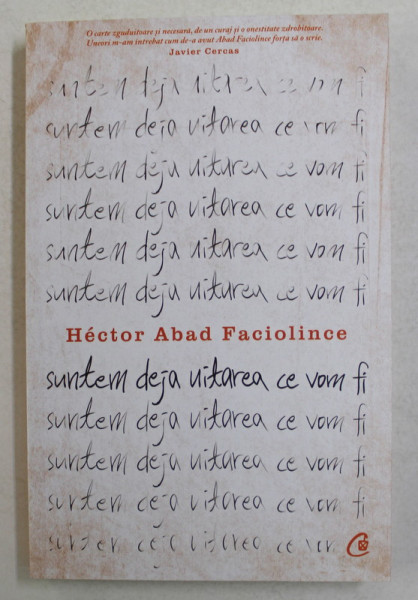 'O carte zguduitoare și necesară, de un curaj și o onestitate zdrobitoare.
Uneori m-am întrebat cum de-a avut Abad Faciolince forța să o scrie.
Javier Cercas
suntem deja uitarea ce vom fi
suntem deja uitarea ce vom fi
suntem deja uitarea ce vom fi
suntem deja uitarea ce vom fi
suntem deja uitarea ce vom fi
suntem deja uitarea ce vom fi
Héctor Abad Faciolince
suntem deja uitarea ce vom fi
suntem deja uitarea ce vom fi
suntem deja uitarea ce vom fi
suntem deja uitarea ce vom fi
suntem deja uitarea ce vom